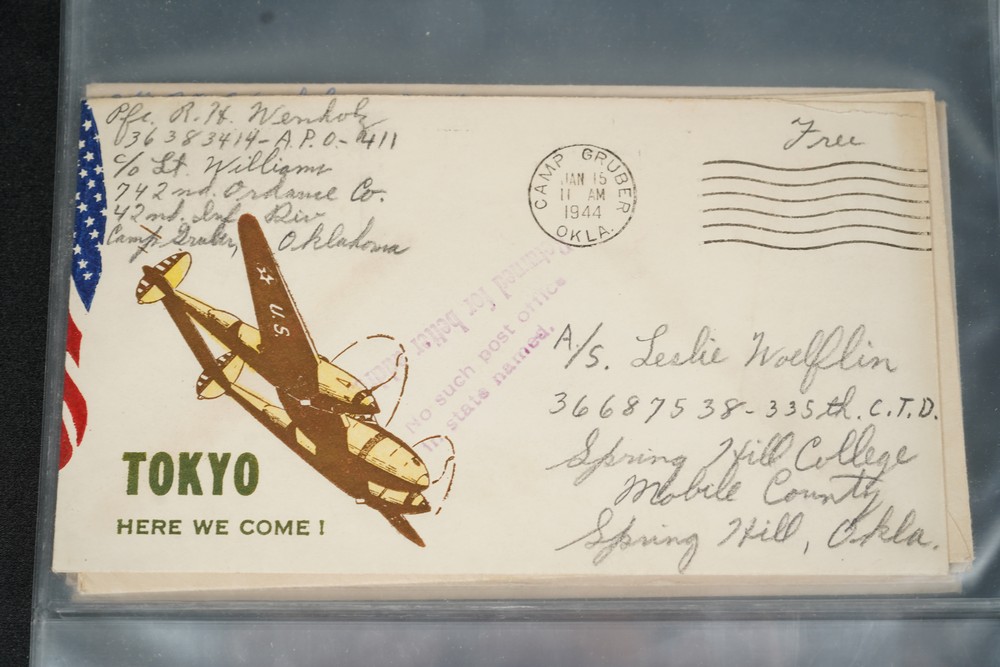 Pfc. R. H. Wenholz
36383414-A.P.O-411
c/o Lt. Williams
742nd. Ordance Co.
42nd. Inf Div
Camp Gruber, Oklahoma
Free
CAMP GRUBER
JAN 15
11 AM
1944
OKLA.
U.S.
Returned for better
No such post office
in state named.
A/S. Leslie Woelflin
36687538-335th. C.T.D.
Spring Hill College
Mobile County
Spring Hill, Okla.
TOKYO
HERE WE COME!